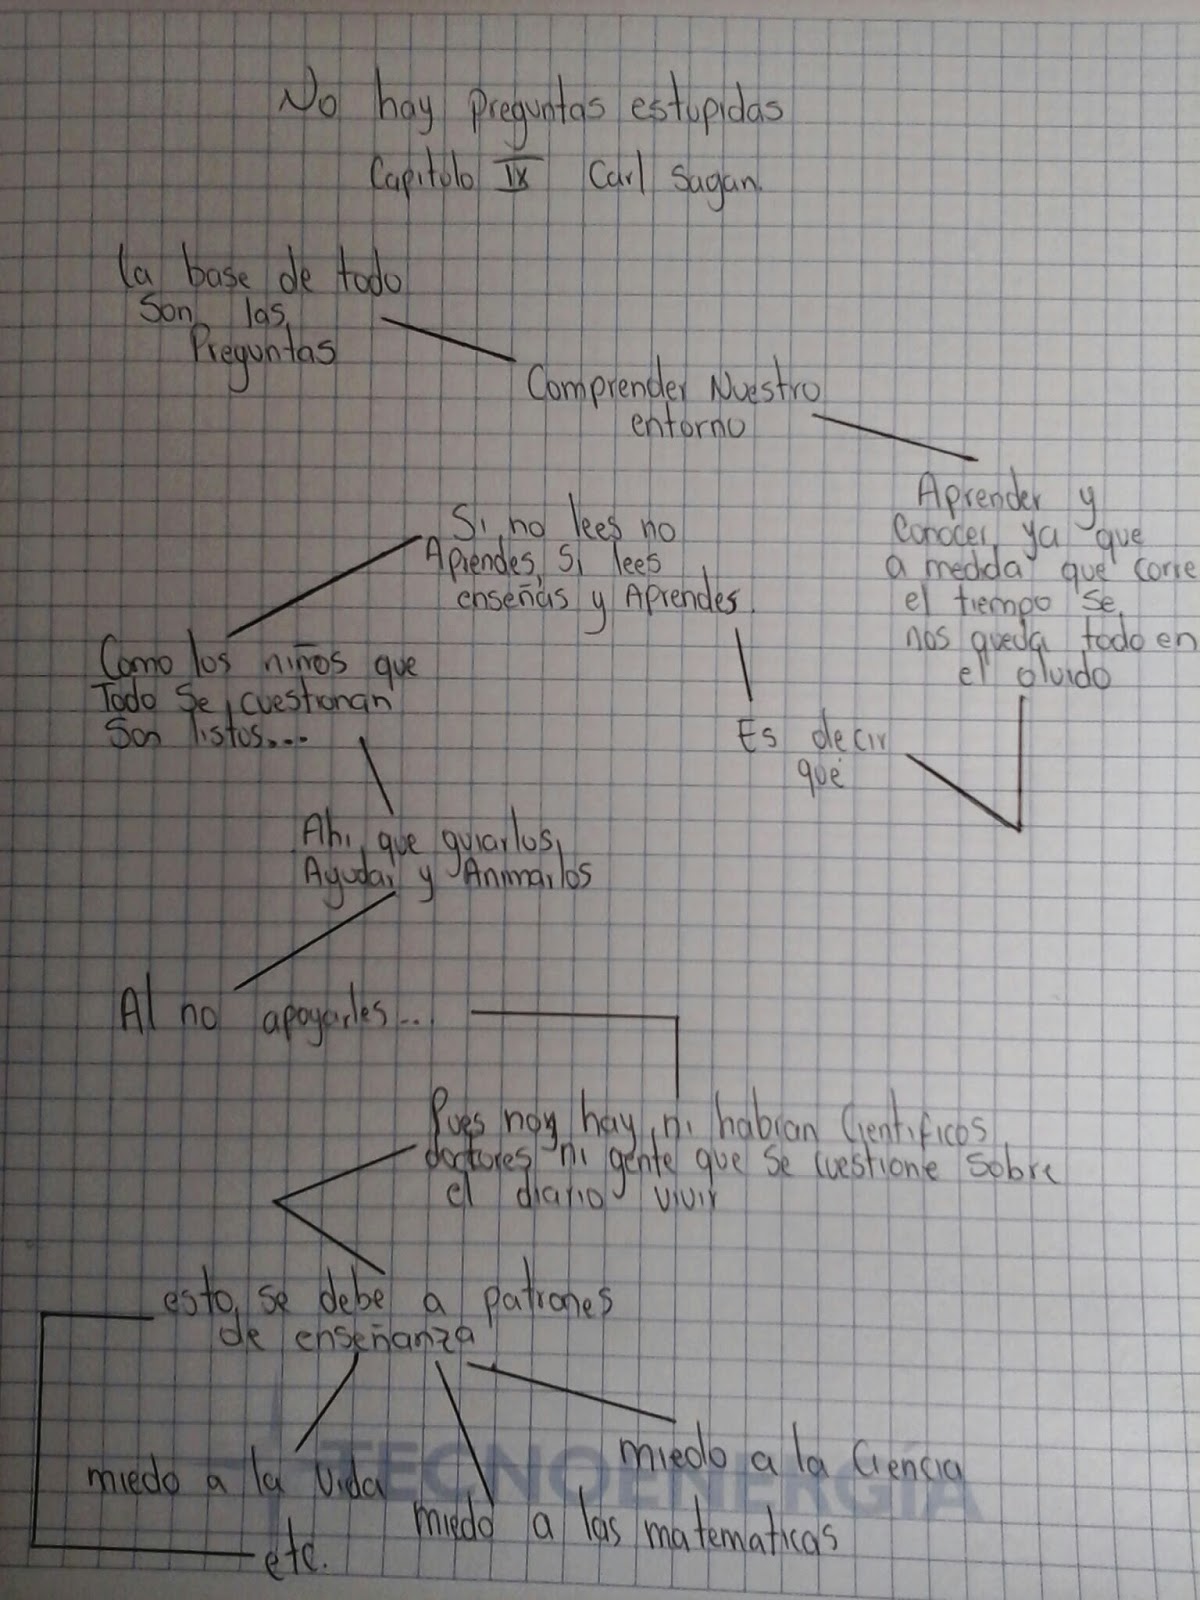 No hay Preguntas estupidas
Capitulo IX Carl Sagan.
la base de todo
Son las
Preguntas
Comprender Nuestro
entorno
Aprender y
Conocer, ya que
a medida que corre
el tiempo se
nos queda todo en
el olvido
Si no lees no
Aprendes, Si lees
enseñas y Aprendes.
Es decir
que
Como los niños que
Todo Se cuestionan
Son listos...
Ahi que guiarlos,
Ayudar y Animarlos
Al no apoyarles...
Pues noy hay ni habian Cientificos
doctores ni gente que se cuestione sobre
el diario vivir
esto se debe a patrones
de enseñanza
miedo a la vida
miedo a la Ciencia
miedo a las matematicas
etc.
TECNOENERGÍA